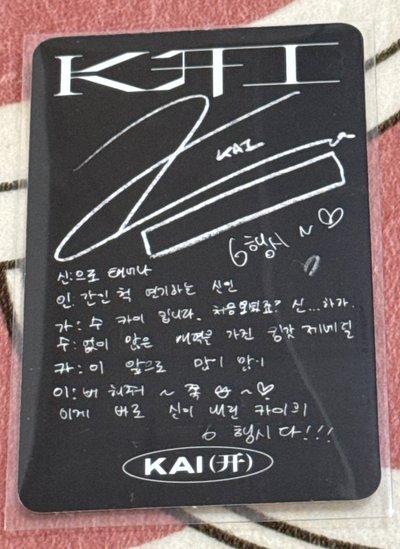 K开I
KAI
6행시 ~ ♡
신: 으로 태어나
인: 간인 척 연기하는 신인
가: 수 카이 입니다. 처음뵙죠? 신...하가.
수: 없이 많은 매력을 가진 킹갓 제너럴
카: 이 앞으로 많이 많이
이: 뻐 해줘 ~ 쪽 ~ ♡
이게 바로 신이 내린 카이의
6 행시 다!!!
KAI(开)